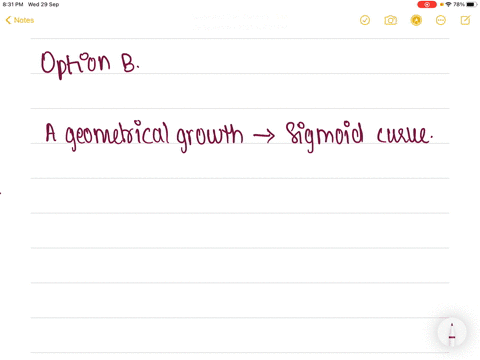 8:31 PM Wed 29 Sep
78%
Notes
Option B.
A geometrical growth → Sigmoid curve.